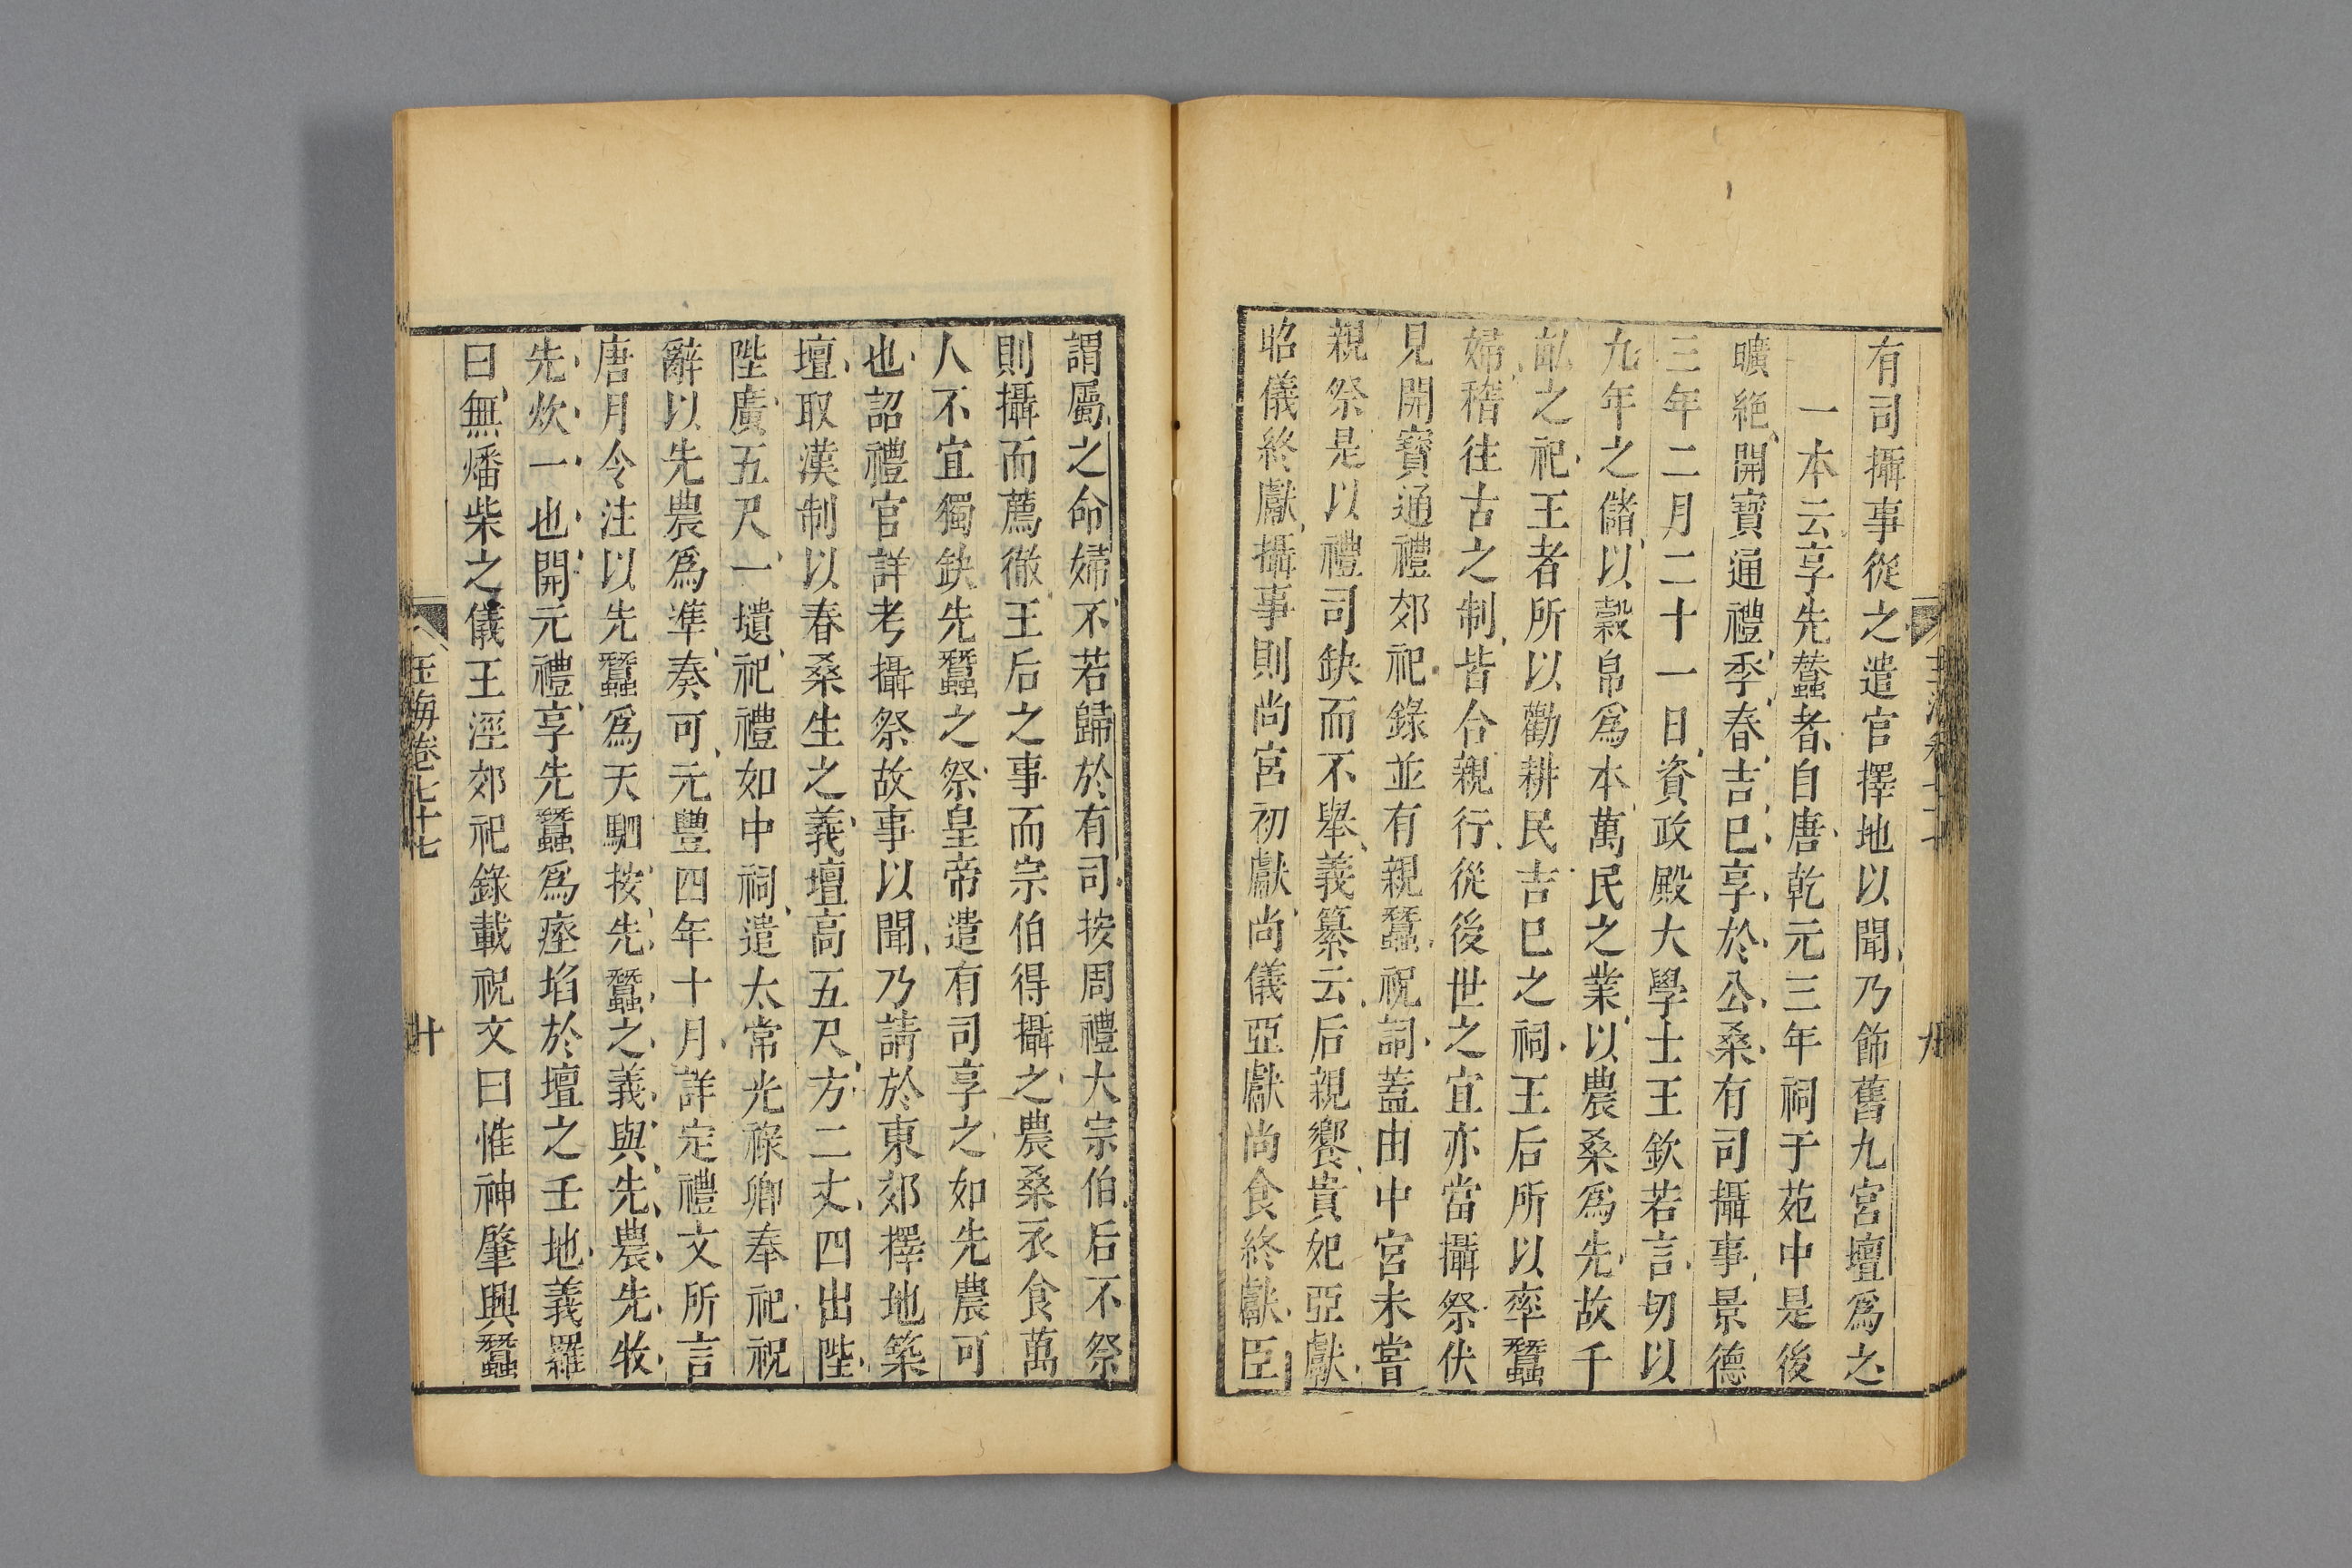 有司攝事從之遣官擇地以聞乃飾舊九宮壇爲之
一本云享先蠶者自唐乾元三年祠于苑中是後
曠絕開寶通禮季春吉巳享於公桑有司攝事景德
三年二月二十一日資政殿大學士王欽若言切以
九年之儲以穀帛爲本萬民之業以農桑爲先故千
畝之祀王者所以勸耕民吉巳之祠王后所以率蠶
婦稽往古之制皆合親行從後世之宜亦當攝祭伏
見開寶通禮郊祀錄並有親蠶祝詞蓋由中宮未嘗
親祭是以禮司缺而不舉義纂云后親饗貴妃亞獻
昭儀終獻攝事則尚宮初獻尚儀亞獻尚食終獻臣
謂屬之命婦不若歸於有司按周禮大宗伯后不祭
則攝而薦徹王后之事而宗伯得攝之農桑衣食萬
人不宜獨缺先蠶之祭皇帝遣有司享之如先農可
也詔禮官詳考攝祭故事以聞乃請於東郊擇地築
壇取漢制以春桑生之義壇高五尺方二丈四出陛
陛廣五尺一壝祀禮如中祠遣太常光祿卿奉祀祝
辭以先農爲準奏可元豐四年十月詳定禮文所言
唐月令注以先蠶爲天駟按先蠶之義與先農先牧
先炊一也開元禮享先蠶爲瘞埳於壇之壬地義羅
曰無燔柴之儀王涇郊祀錄載祝文曰惟神肇興蠶
玉海卷七十七
十